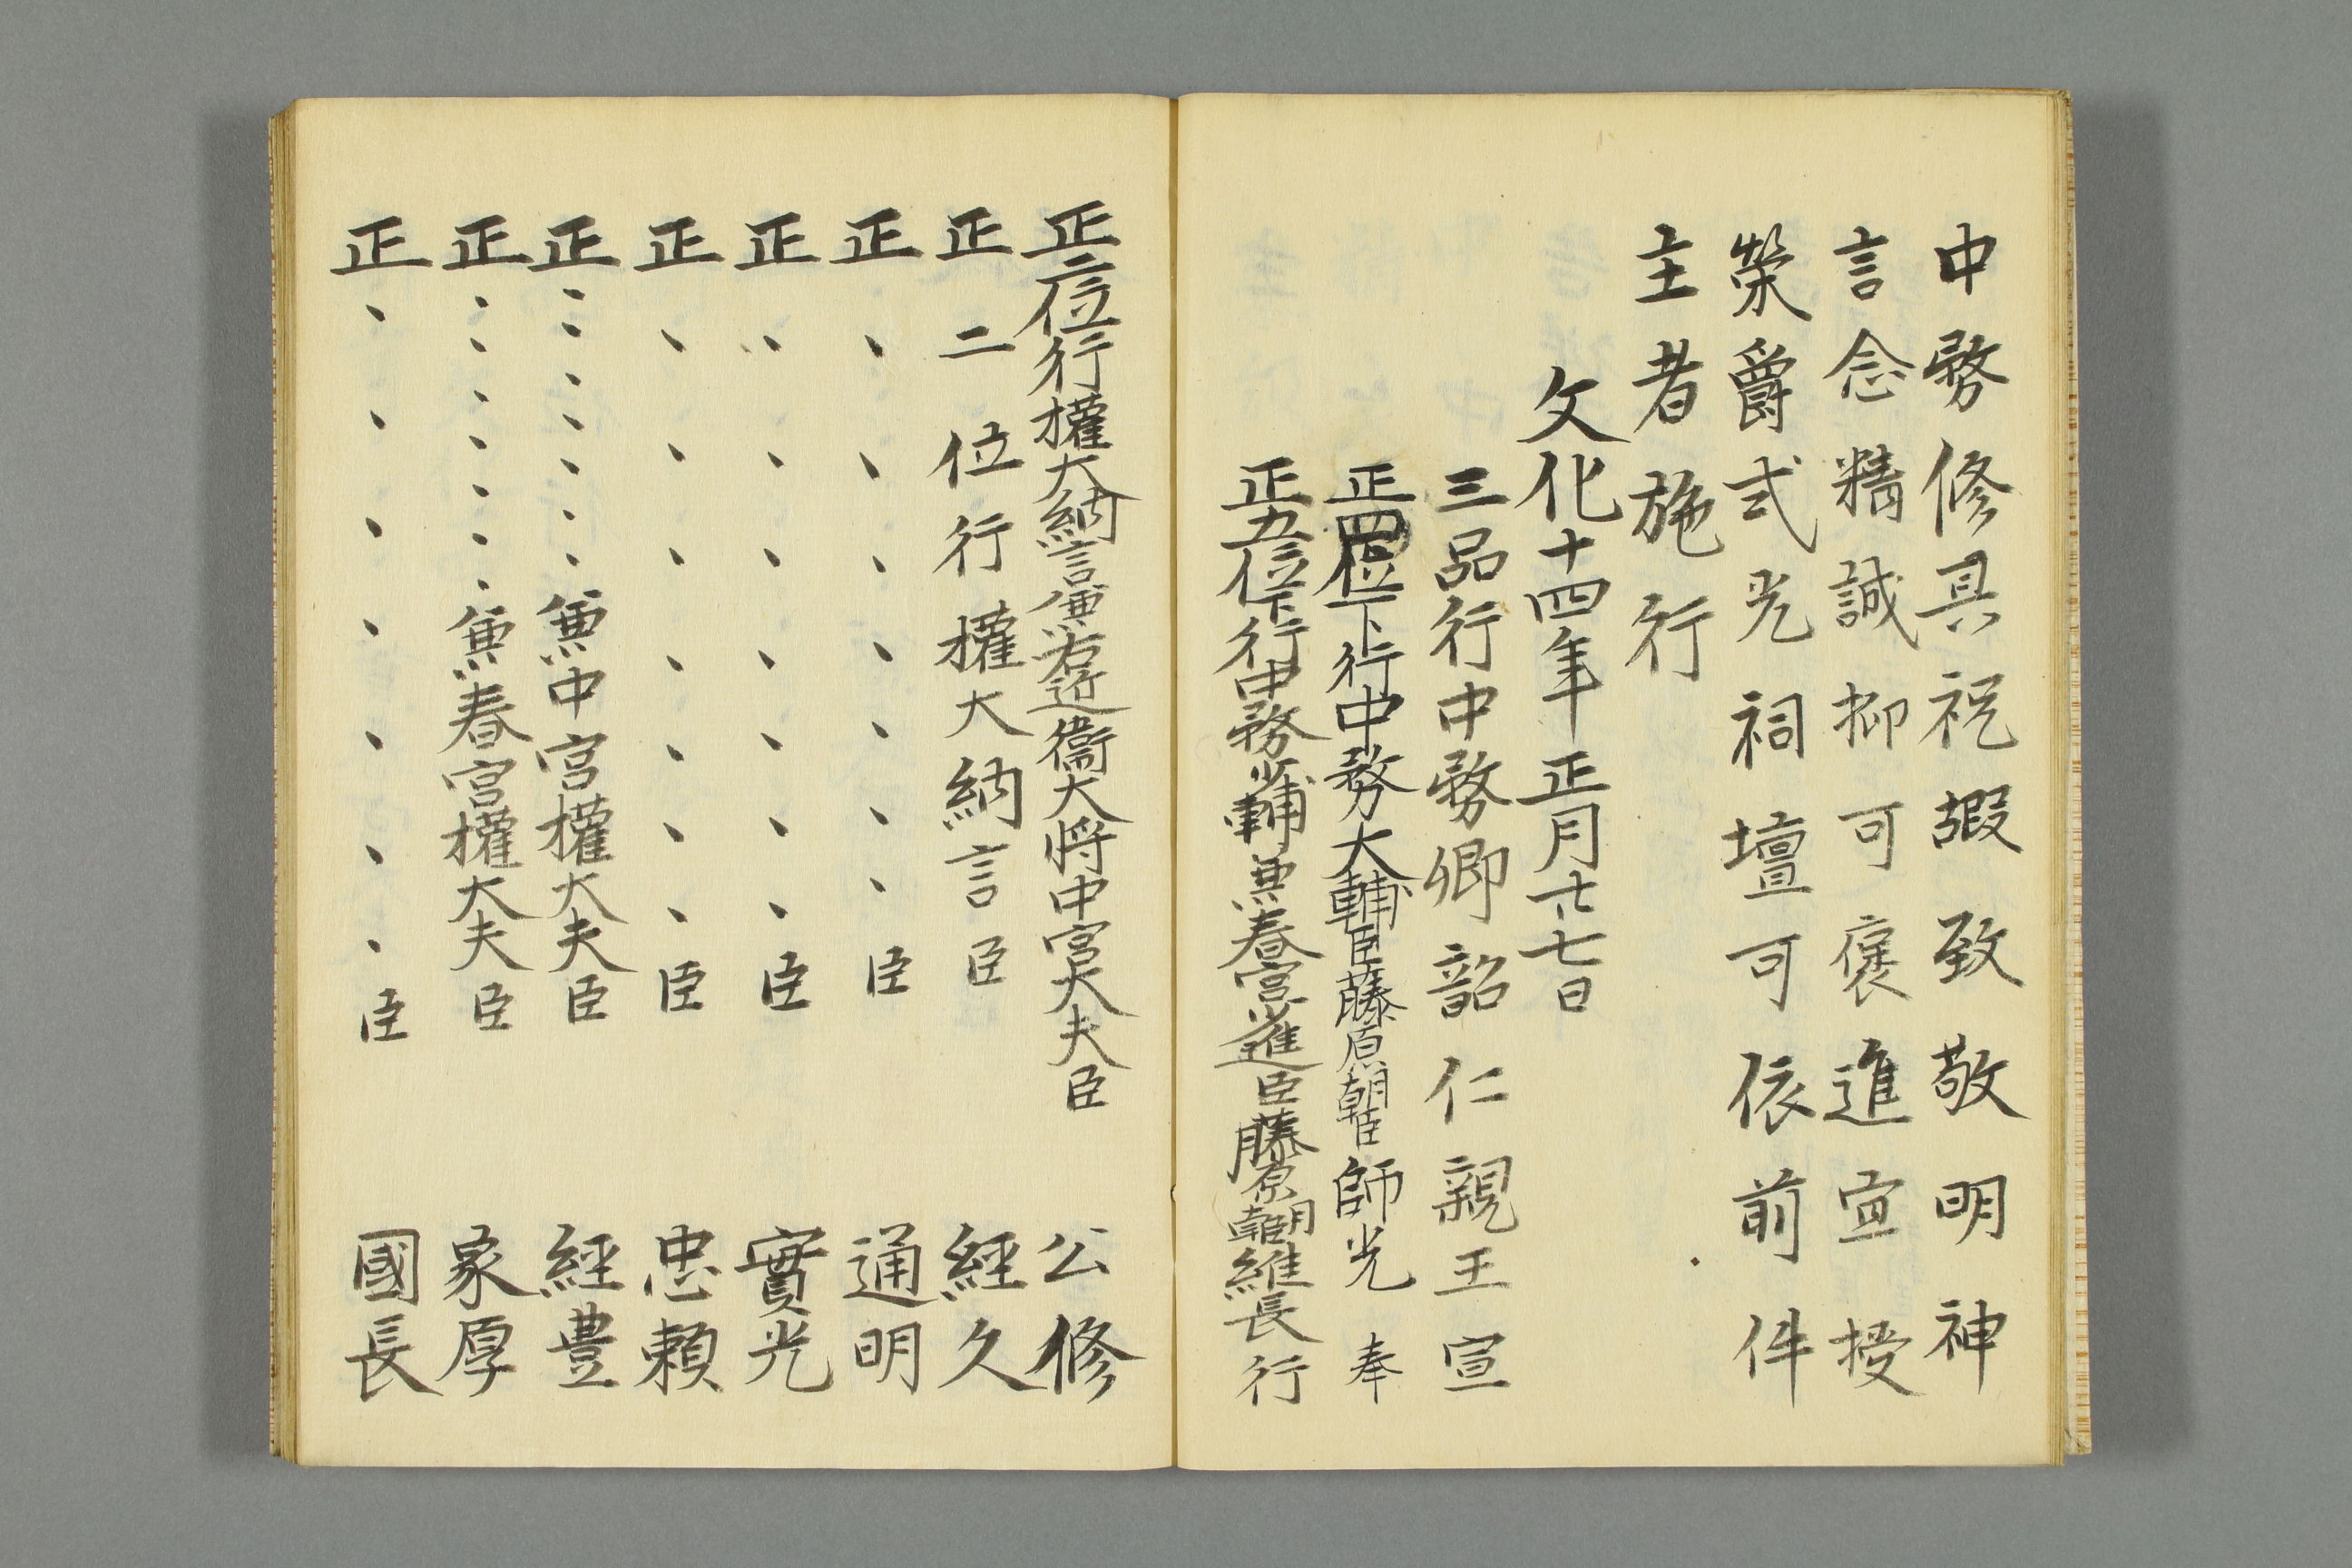 中務修具祝嘏致敬明神
言念精誠抑可褒進宣授
榮爵式光祠壇可依前件
主者施行
文化十四年正月廿七日
三品行中務卿韶仁親王宣
正四位下行中務大輔臣藤原朝臣師光奉
正五位下行中務少輔兼春宮少進臣藤原朝臣維長行
正二位行權大納言兼右近衞大将中宮大夫臣 公修
正二位行權大納言臣 經久
正、、、、、、、臣 通明
正、、、、、、、臣 實光
正、、、、、、、臣 忠頼
正、、、、、、、兼中宮權大夫臣 經豊
正、、、、、、、兼春宮權大夫臣 家厚
正、、、、、、、臣 國長